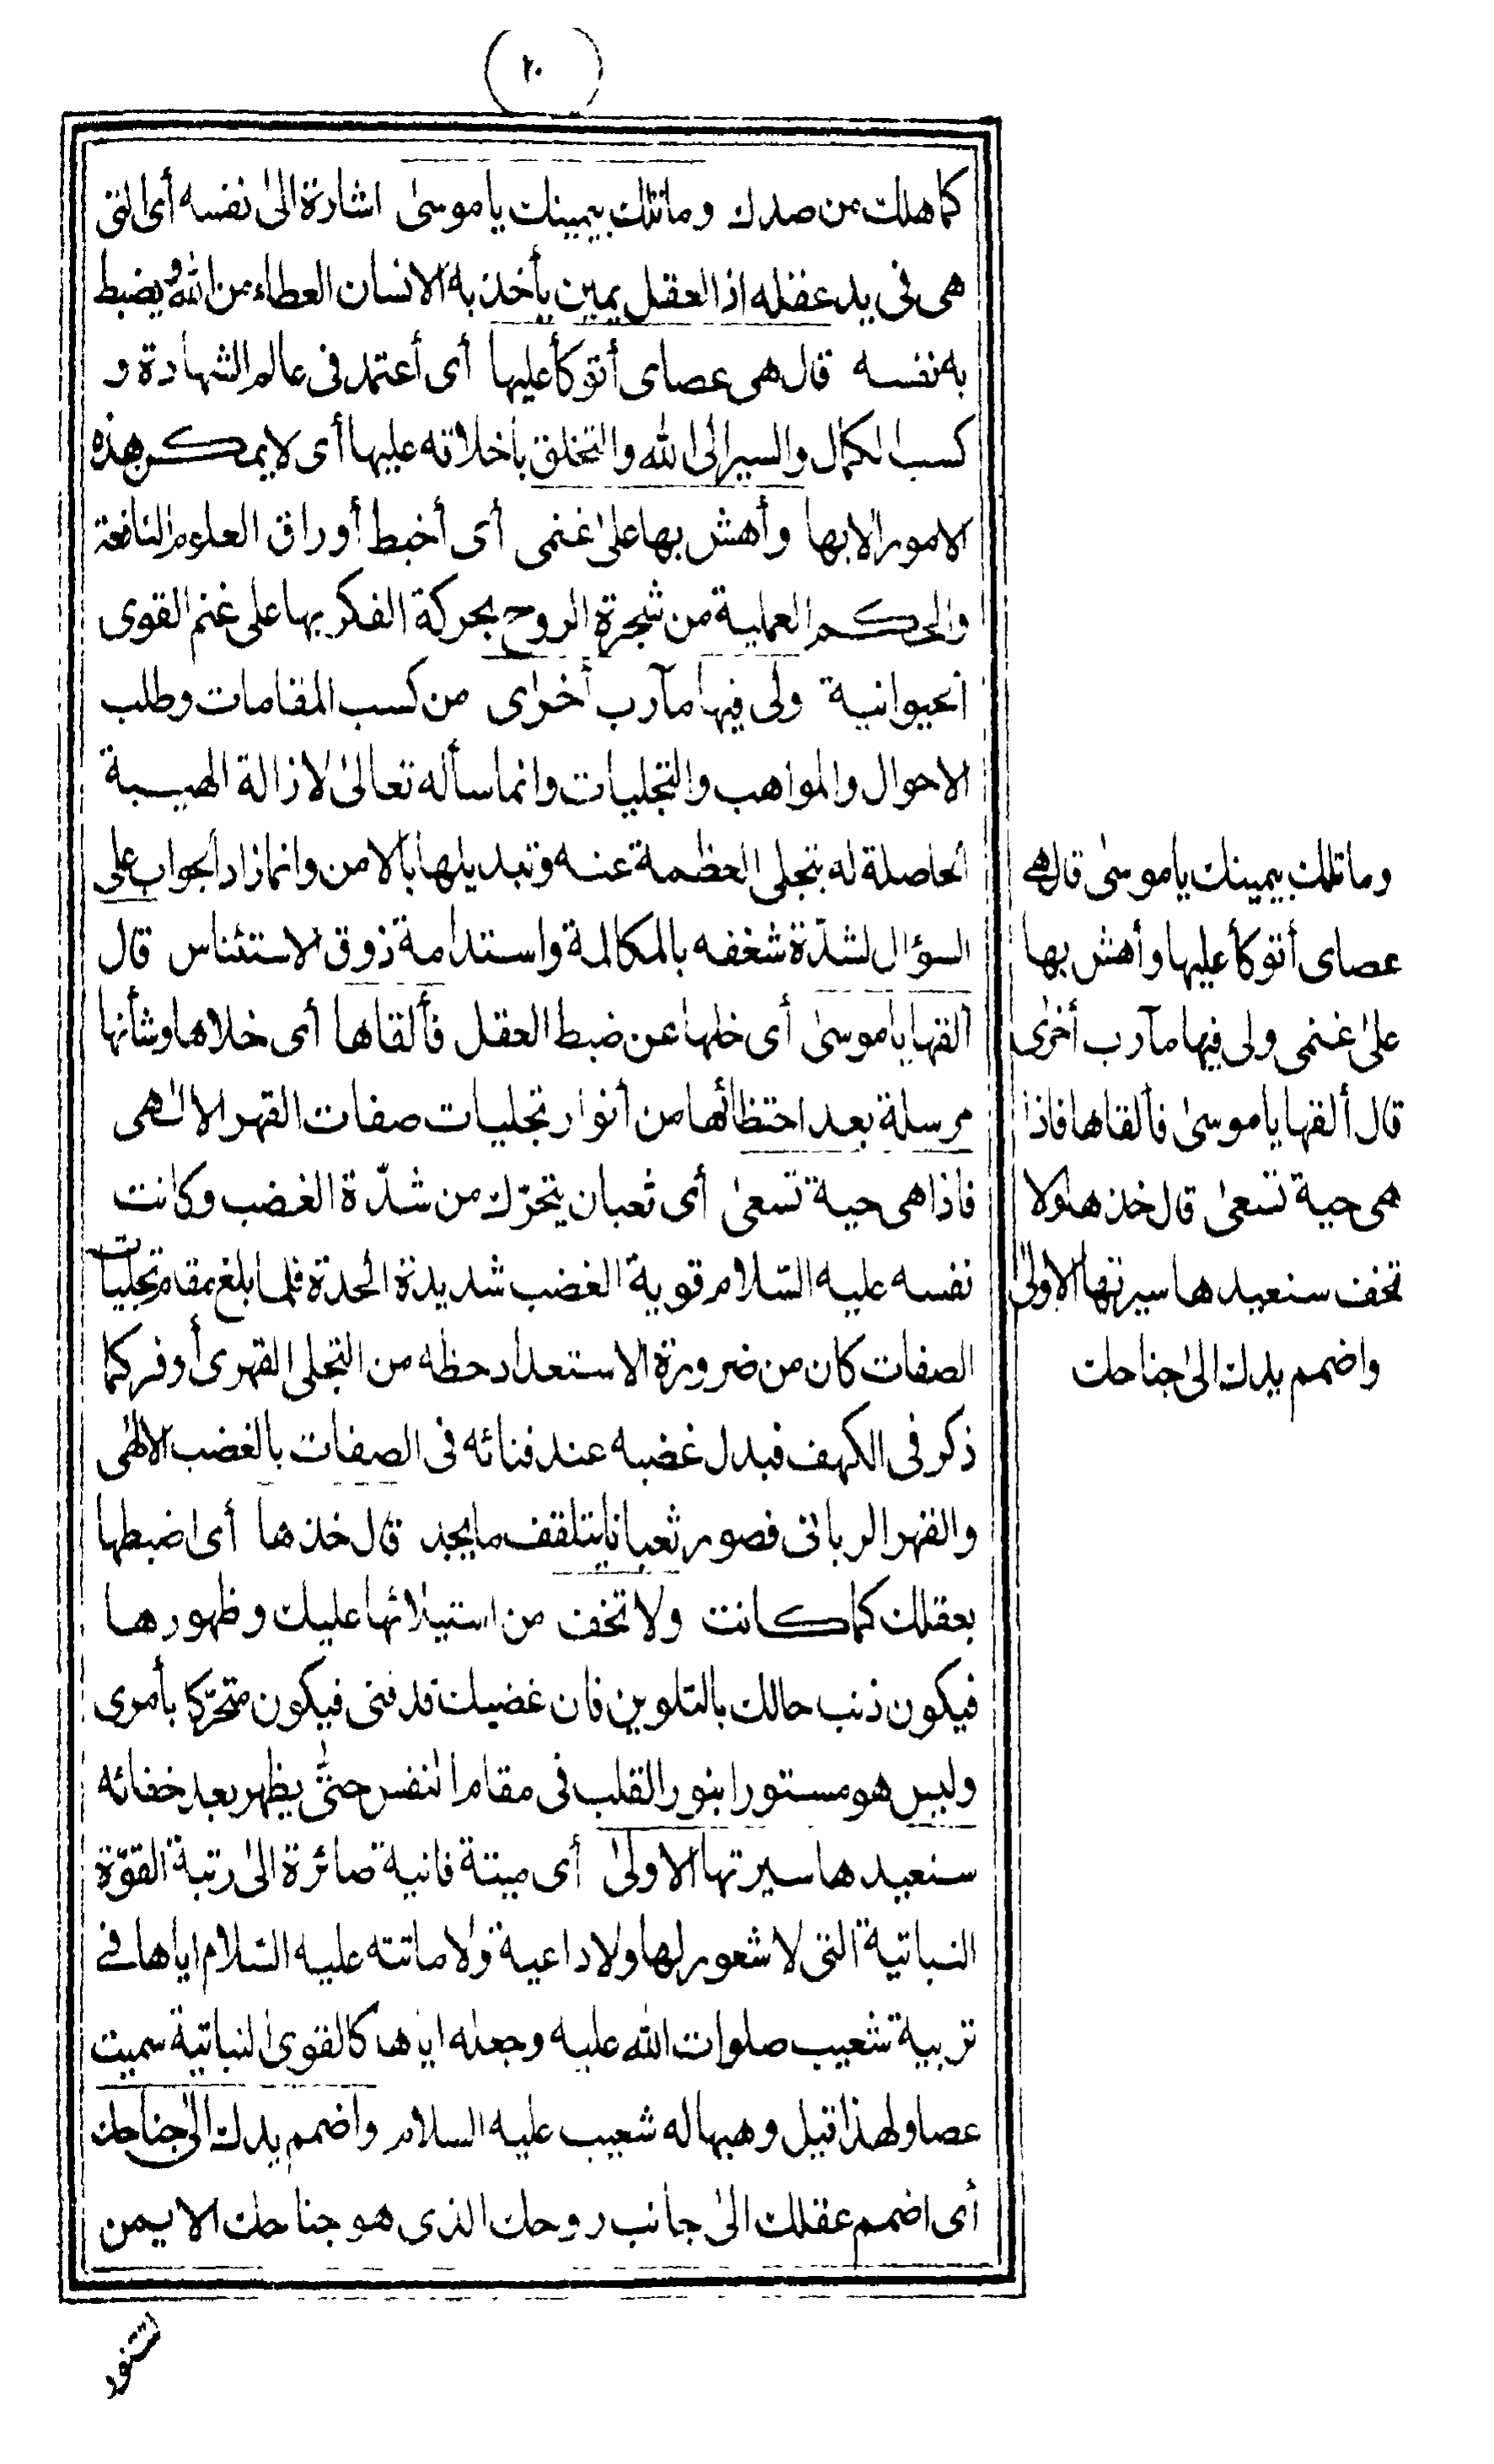 ٢٠
كما هلك من صدك وما تلك بيمينك يا موسىٰ اشارة الىٰ نفسه أى التى
هى فى يد عقله اذ العقل يمين يأخذ به الانسان العطاء من الله ويضبط
به نفسه قال هى عصاى أتوكأ عليها أى أعتمد فى عالم الشهادة و
كسب الكمال والسير الى الله والتخلق بأخلاقه عليها أى لا يمكن هذه
الامور الا بها وأهش بها علىٰ غنمى أى أخبط أوراق العلوم النافعة
والحكم العملية من شجرة الروح بحركة الفكر بها على غنم القوى
الحيوانية ولى فيها مآرب أخرٰى من كسب المقامات وطلب
الاحوال والمواهب والتجليات وانما سأله تعالىٰ لازالة الهيبة
الحاصلة له بتجلى العظمة عنه وتبديلها بالامن وانما زاد الجواب على
السؤال لشدّة شغفه بالمكالمة واستدامة ذوق الاستئناس قال
ألقها يا موسىٰ أى خلها عن ضبط العقل فألقاها أى خلاها وشأنها
مرسلة بعد احتظائها من أنوار تجليات صفات القهر الالٰهى
فاذا هى حية تسعىٰ أى ثعبان يتحرّك من شدّة الغضب وكانت
نفسه عليه السّلام قوية الغضب شديدة الحدة فلما بلغ مقام تجليات
الصفات كان من ضرورة الاستعداد حظه من التجلى القهرى أوفر كما
ذكر فى الكهف فبدل غضبه عند فنائه فى الصفات بالغضب الالٰهى
والقهر الربانى فصور ثعبانا يتلقف ما يجد قال خذها أى اضبطها
بعقلك كما كانت ولا تخف من استيلائها عليك وظهورها
فيكون ذنب حالك بالتلوين فان غضبك قد فنى فيكون متحرّكا بأمرى
وليس هو مستورا بنور القلب فى مقام النفس حتّىٰ يظهر بعد خفائه
سنعيدها سيرتها الاولىٰ أى ميتة فانية صائرة الىٰ رتبة القوّة
النباتية التى لا شعور لها ولا داعية ولاماتته عليه السّلام اياها فى
تربية شعيب صلوات الله عليه وجعله اياها كالقوى النباتية سميت
عصا ولهذا قيل وهبها له شعيب عليه السلام واضمم يدك الىٰ جناحك
أى اضمم عقلك الىٰ جانب روحك الذى هو جناحك الايمن
وما تلك بيمينك يا موسىٰ قال هى
عصاى أتوكأ عليها وأهش بها
علىٰ غنمى ولى فيها مآرب أخرٰى
قال ألقها يا موسىٰ فألقاها فاذا
هى حية تسعىٰ قال خذها ولا
تخف سنعيدها سيرتها الاولىٰ
واضمم يدك الىٰ جناحك